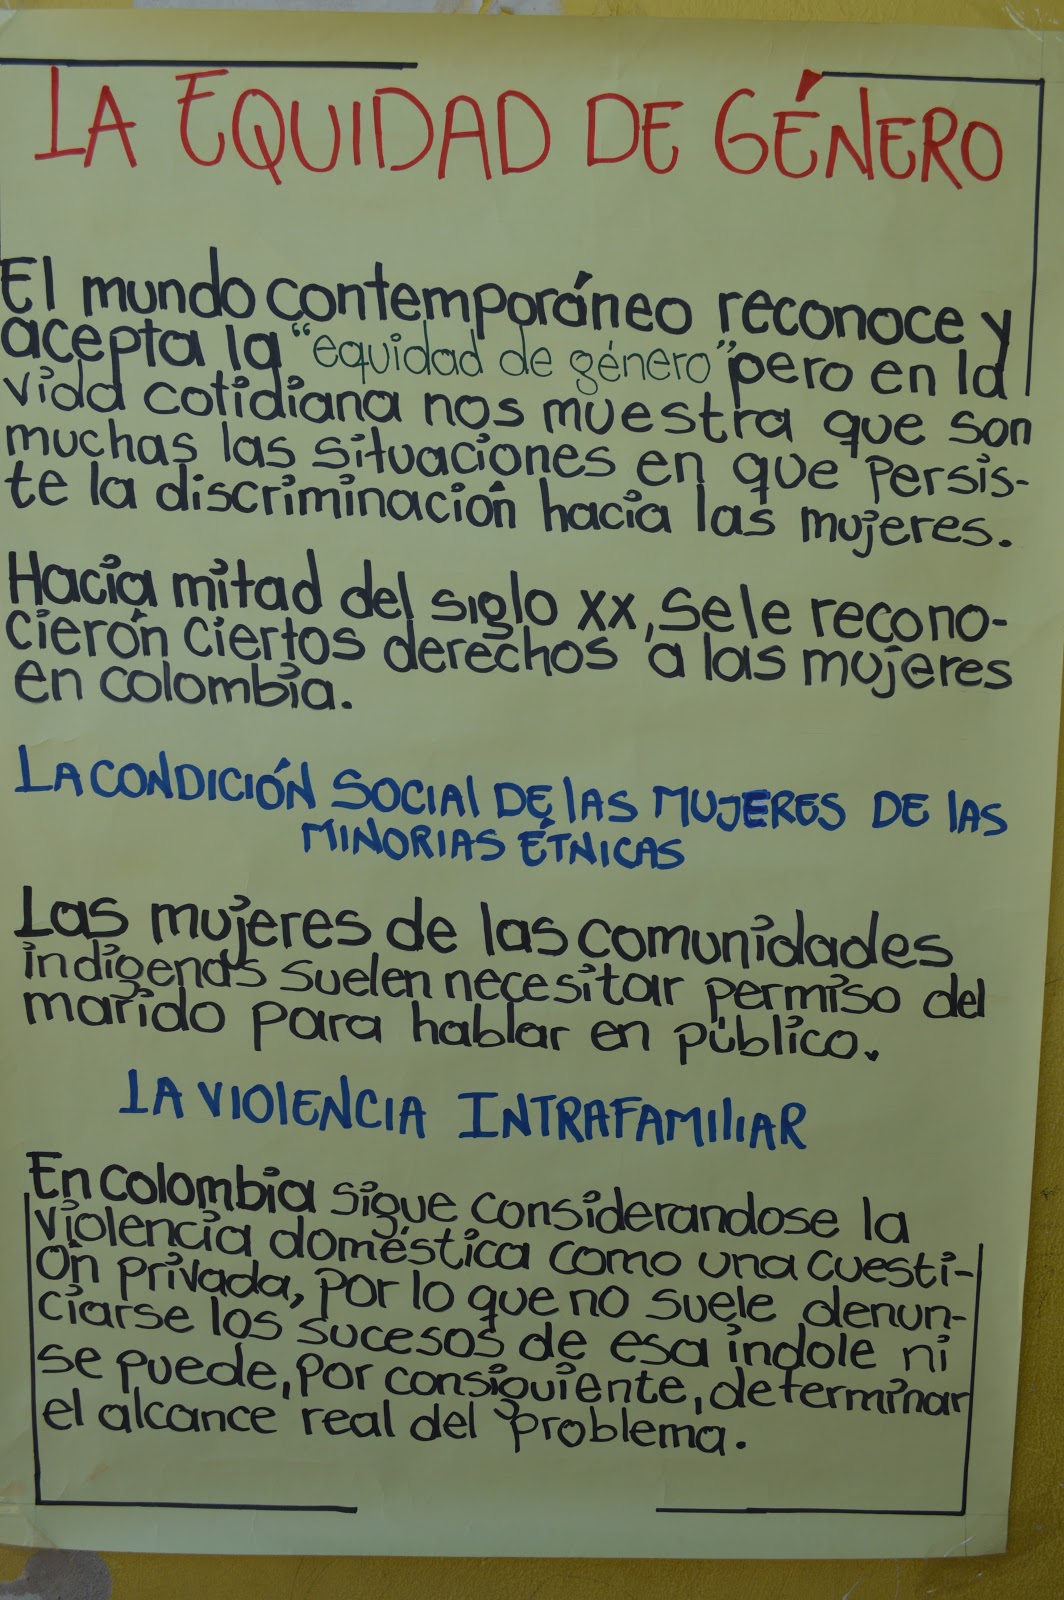 LA EQUIDAD DE GÉNERO
El mundo contemporáneo reconoce y
acepta la "equidad de género" pero en la
vida cotidiana nos muestra que son
muchas las situaciones en que persis-
te la discriminación hacia las mujeres.
Hacia mitad del siglo xx, se le recono-
cierón ciertos derechos a las mujeres
en colombia.
LA CONDICIÓN SOCIAL DE LAS MUJERES DE LAS
MINORIAS ÉTNICAS
Las mujeres de las comunidades
indígenas suelen necesitar permiso del
marido para hablar en público.
LA VIOLENCIA INTRAFAMILIAR
En colombia sigue considerandose la
violencia doméstica como una cuesti-
ón privada, por lo que no suele denun-
ciarse los sucesos de esa índole ni
se puede, por consiguiente, determinar
el alcance real del problema.